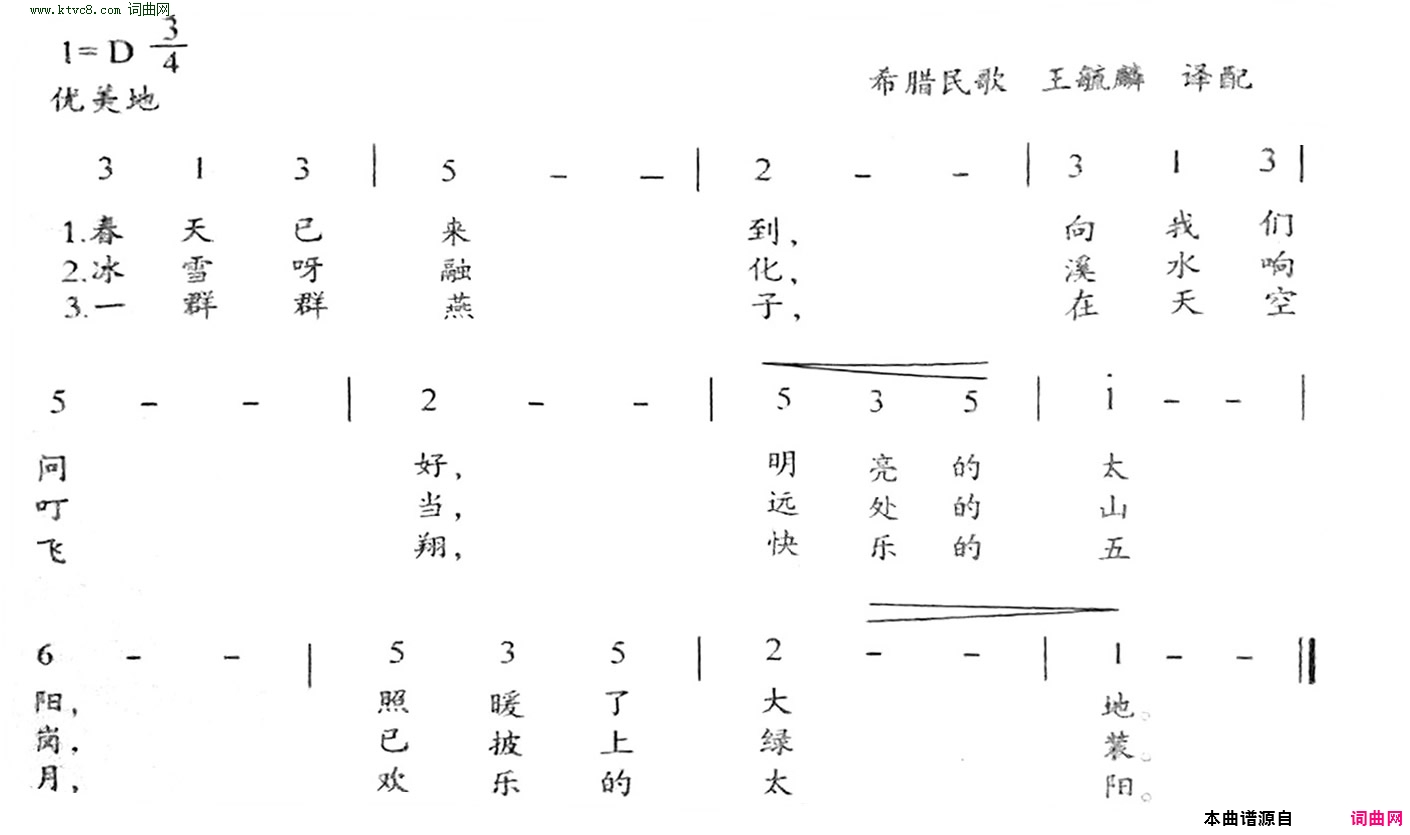 www.ktvc8.com 词曲网
1=D 3/4
优美地
希腊民歌 王毓麟 译配
3 1 3 | 5 - - | 2 - - | 3 1 3 |
1.春天已来到，向我们
2.冰雪呀融化，溪水响
3.一群群燕子，在天空
5 - - | 2 - - | 5 3 5 | i - - |
问好，明亮的太
叮当，远处的山
飞翔，快乐的五
6 - - | 5 3 5 | 2 - - | 1 - - ‖
阳，照暖了大地。
岗，已披上绿装。
月，欢乐的太阳。
本曲谱源自 词曲网